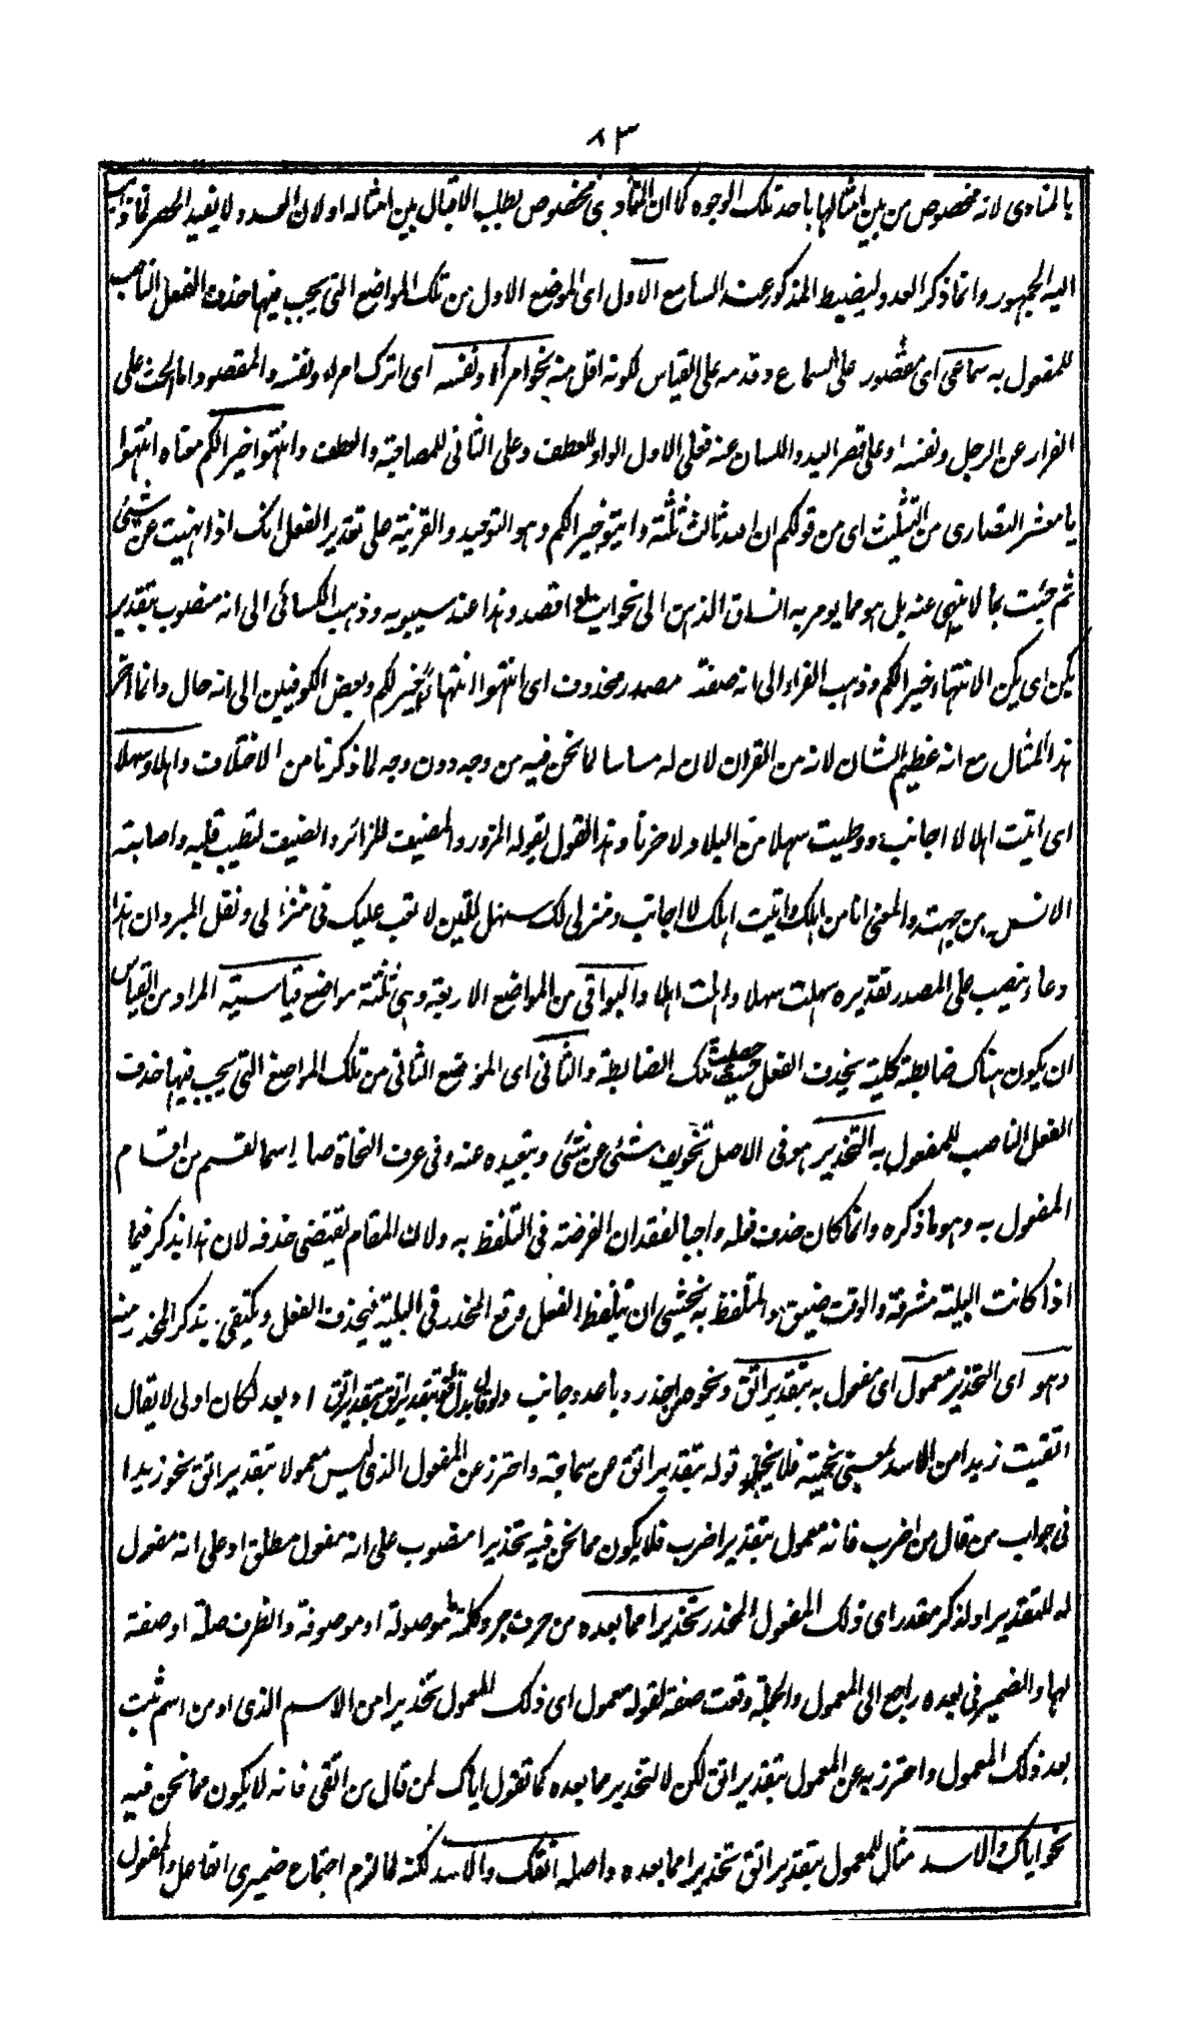 ٨٣
بالمنادى لانه مخصوص من بين امثالها باحد تلك الوجوه كما ان المنادى مخصوص لطلب الاقبال بين امثاله او لان العدد لا يفيد الحصر كما ذهب
اليه الجمهور وانما ذكر العدد ليضبط المذكور عند السامع الاول اى الموضع الاول من تلك المواضع التى يجب فيها حذف الفعل الناصب
للمفعول به سماعى اى مقصور على السماع وقدمه على القياس لكونه اقل منه نحو امرأً ونفسه اى اترك امرأ ونفسه والمقصود اما الحث على
الفرار عن الرجل ونفسه او على قصر اليد واللسان عنه فعلى الاول الواو للعطف وعلى الثانى للمصاحبة والعطف وانتهوا خيرا لكم معناه انتهوا
يا معشر النصارى من التثليث اى من قولكم ان الله ثالث ثلثة وايتوا خيرا لكم وهو التوحيد والقرينة على تقدير الفعل انك اذا نهيت عن شئ
ثم جئت بما لا ينهى عنه بل هو مما يومر به انساق الذهن الى نحو ايت او اقصد وهذا عند سيبويه وذهب الكسائى الى انه منصوب بتقدير
يكن اى يكن الانتهاء خيرا لكم وذهب الفراء الى انه صفة مصدر محذوف اى انتهوا انتهاءً خيرا لكم وبعض الكوفيين الى انه حال وانما اخر
هذا المثال مع انه عظيم الشان لانه من القران لان له مساسا لما نحن فيه من وجه دون وجه لما ذكرنا من الاختلاف واهلا وسهلا
اى اتيت اهلا لا اجانب ووطيت سهلا من البلاد لا حزنا وهذا القول يقوله المزور والمضيف للزائر والضيف لتطييب قلبه واصابته
الانس من جهته والمعنى انا من اهلك واتيت اهلك لا اجانب ومنزلى لك سهل لتين لا تعب عليك فى منزلى ونقل المبرد ان هذا
دعاء ونصب على المصدر تقديره سهلت سهلا واهلت اهلا والبواقى من المواضع الاربعة وهى ثلثة مواضع قياسية المراد من القياس
ان يكون هناك ضابطة كلية يحذف الفعل حيث حصلت تلك الضابطة والثانى اى الموضع الثانى من تلك المواضع التى يجب فيها حذف
الفعل الناصب للمفعول به التحذير هو فى الاصل تخويف شئ عن شئ وتبعيده عنه وفى عرف النحاة صار اسما لقسم من اقسام
المفعول به وهو ما ذكره وانما كان حذف فعله واجبا لفقدان الفرصة فى التلفظ به ولان المقام يقتضى حذفه لان هذا يذكر فيما
اذا كانت البلية مشرفة والوقت ضيق والمتلفظ به يخشى ان تلفظ الفعل وقع المحذر فى البلية فيحذف الفعل ويكتفى بذكر المحذر منه
وهو اى التحذير معمول اى مفعول به بتقدير اتق ونحوه احذر وباعد وجانب ولو قال بدل قوله بتقدير اتق بتقدير اتق او بعد لكان اولى لا يقال
اتقيت زيدا من الاسد بمعنى نحيته فلا يخل قوله بتقدير اتق عن سماجة واحترز عن المفعول الذى ليس معمولا بتقدير اتق نحو زيدا
فى جواب من قال من اضرب فانه معمول بتقدير اضرب فلا يكون مما نحن فيه تحذيرا منصوب على انه مفعول مطلق او على انه مفعول
له للتقدير او لذكر مقدر اى ذلك المفعول المحذر تحذيرا مما بعده من حرف جر وكلمة ما موصولة او موصوفة والظرف صلة او صفة
لها والضمير فى بعده راجع الى المعمول والجملة وقعت صفة لقوله معمول اى ذلك المعمول تحذيرا من الاسم الذى او من اسم ثبت
بعد ذلك المعمول واحترز به عن المعمول بتقدير اتق لكن لا لتحذير مما بعده كما تقول اياك لمن قال من اتقى فانه لا يكون مما نحن فيه
نحو اياك والاسد مثال للمعمول بتقدير اتق تحذيرا مما بعده واصله اتقك والاسد لكنه لما لزم اجتماع ضميرى الفاعل والمفعول